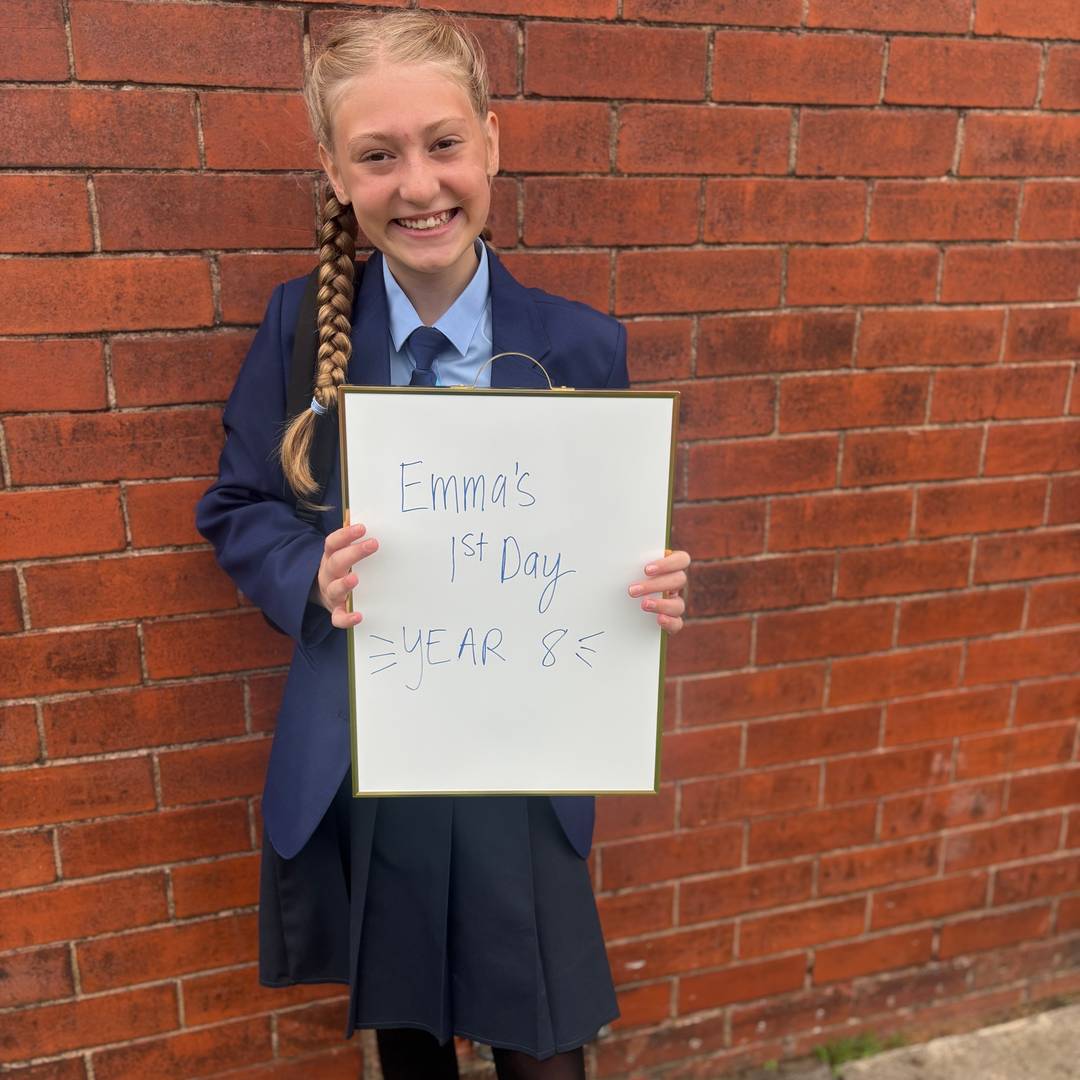 Emma's
1st Day
YEAR 8